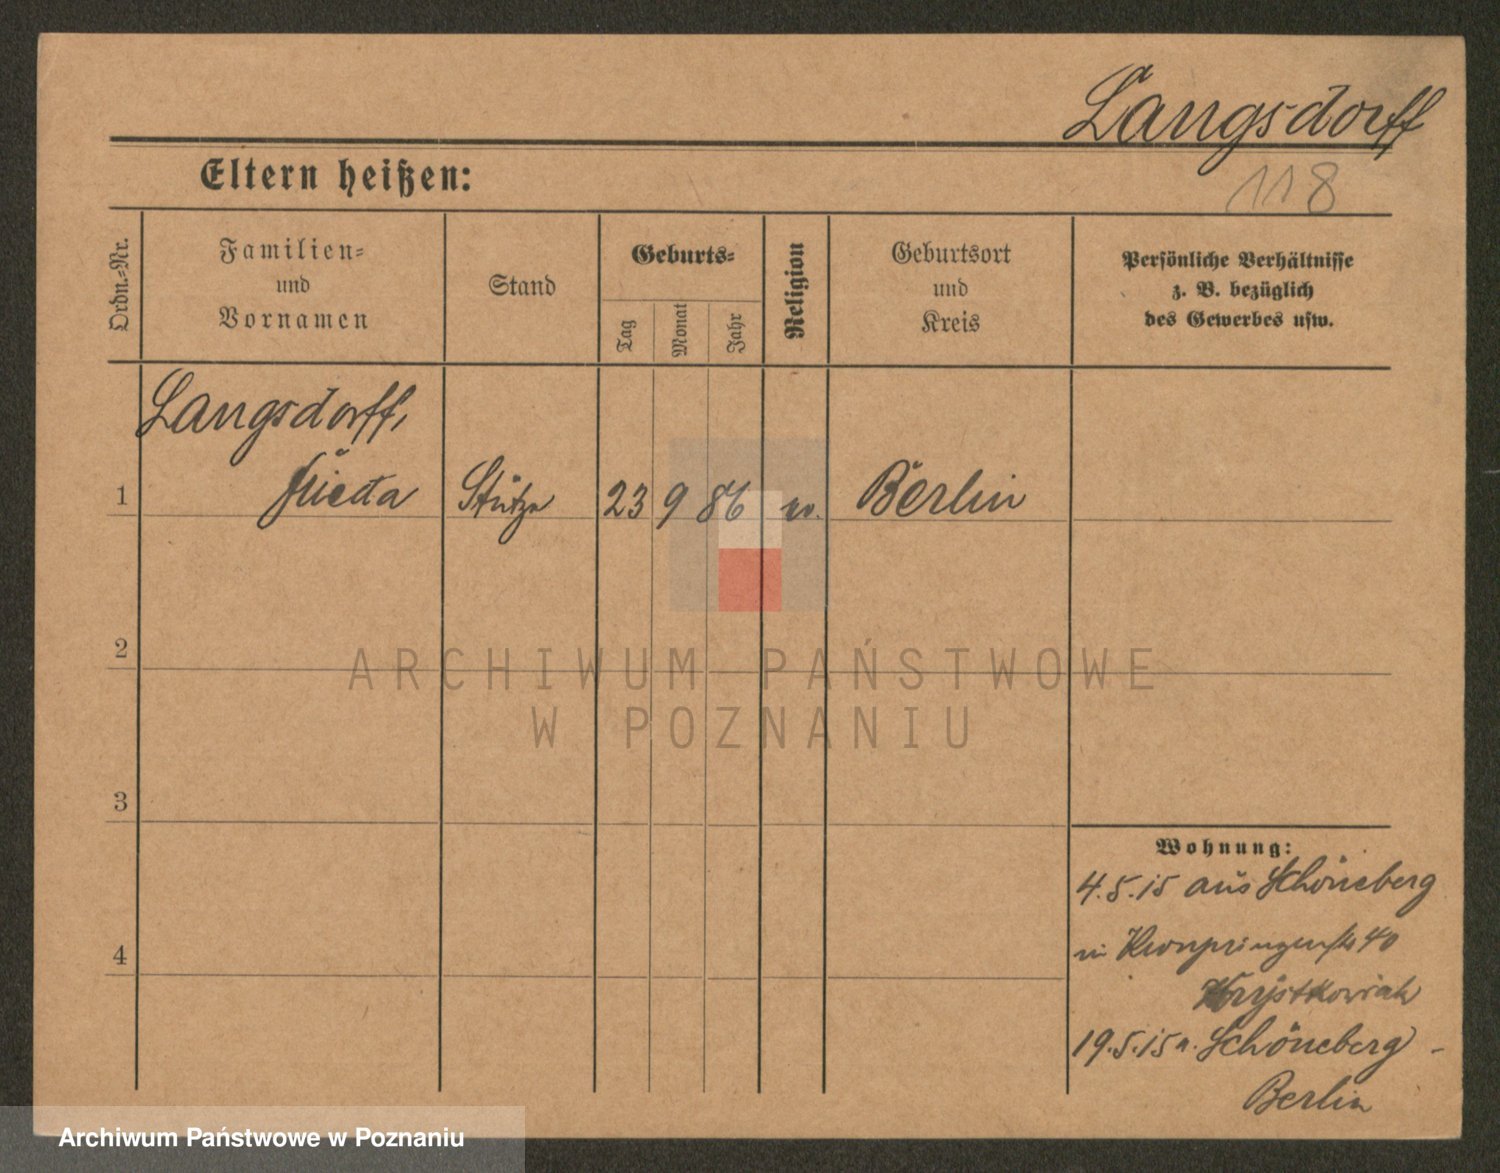 Langsdorff
118
Eltern heißen:
Ordn.-Nr.
Familien-
und
Vornamen
Stand
Geburts-
Tag
Monat
Jahr
Religion
Geburtsort
und
Kreis
Persönliche Verhältnisse
z. B. bezüglich
des Gewerbes usw.
Langsdorff,
1 Frieda Stütze 23 9 86 Berlin
2
3
4
Wohnung:
4.5.15 aus Schöneberg
in Kronprinzenstr 40
Krystkowiak
19.5.15 n. Schöneberg -
Berlin
ARCHIWUM PAŃSTWOWE
W POZNANIU
Archiwum Państwowe w Poznaniu